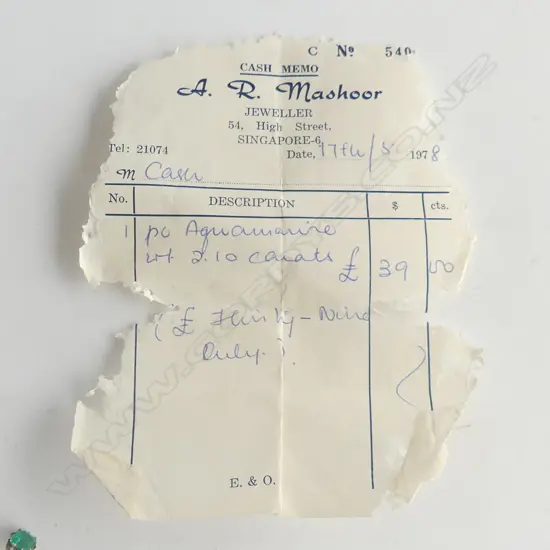 C Nº 540
CASH MEMO
A. R. Mashoor
JEWELLER
54, High Street,
SINGAPORE-6
Tel: 21074
Date, 17th/5 1978
M Cash
No. DESCRIPTION $ cts.
1 pc Aquamarine
wt 2.10 carats £ 39 00
(£ Thirty-Nine
Only.)
E. & O.